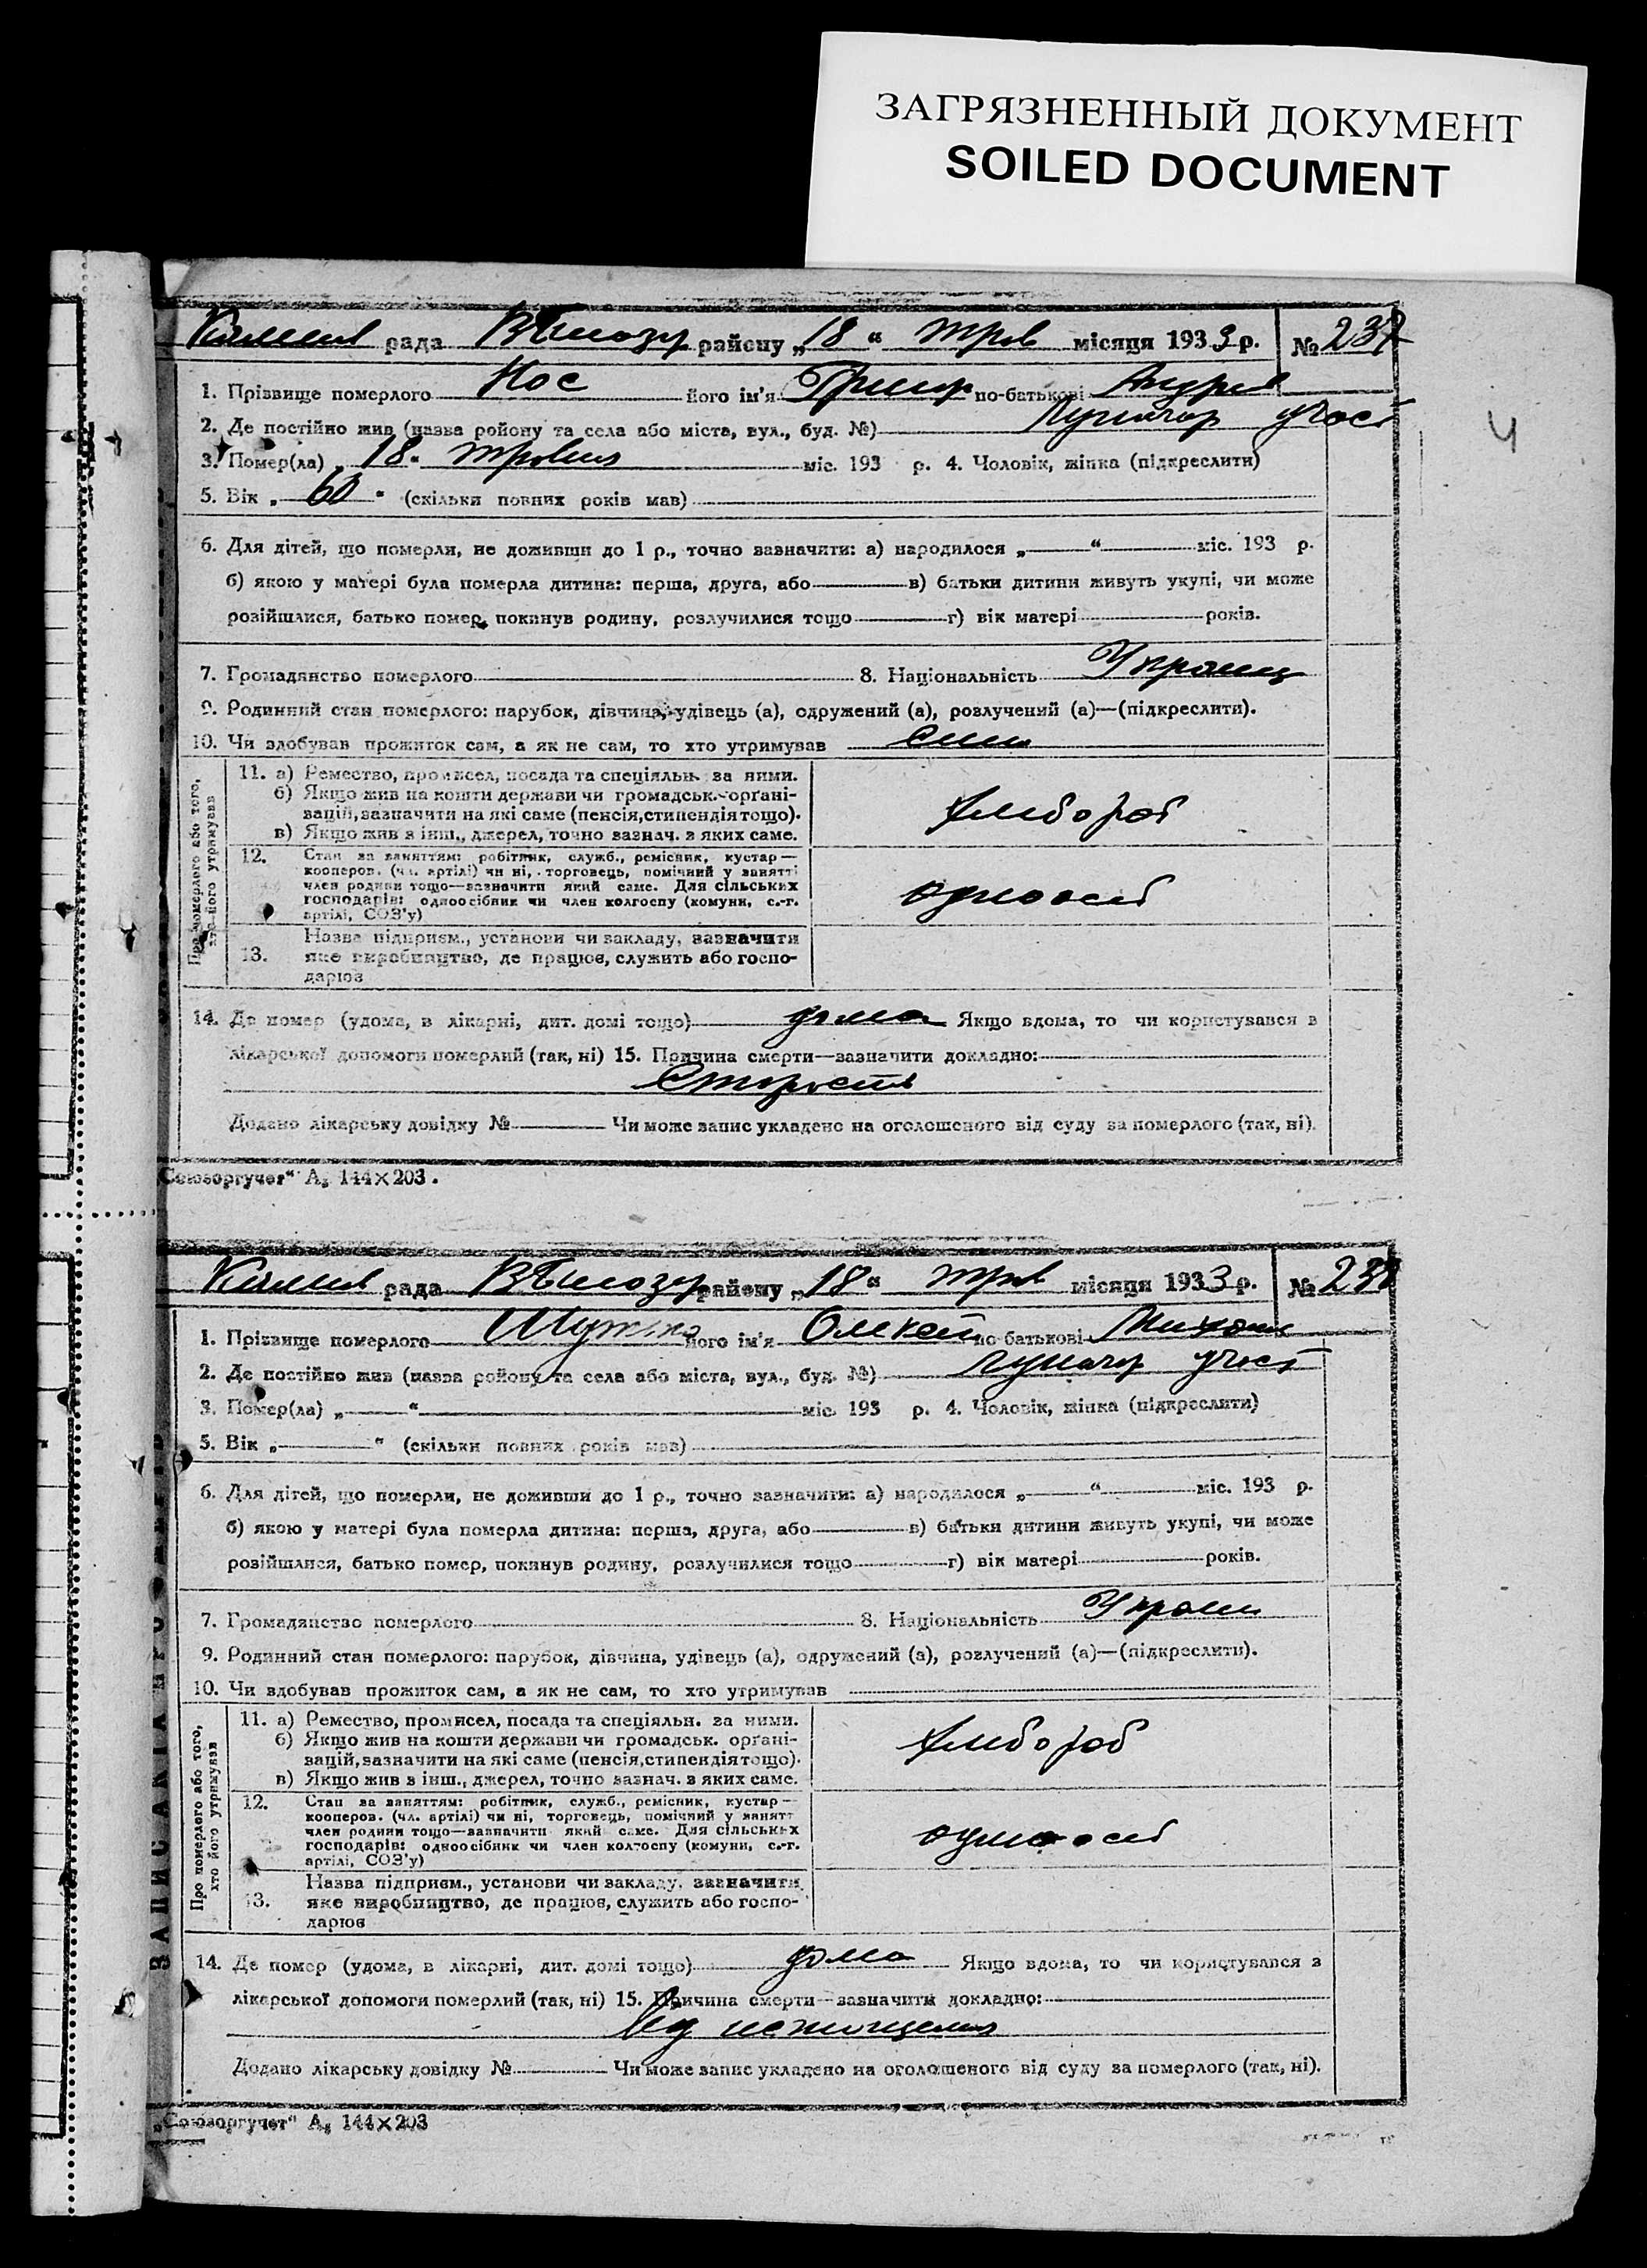 ЗАГРЯЗНЕННЫЙ ДОКУМЕНТ
SOILED DOCUMENT
4
рада ВБілозер району „18“ трав місяця 1933 р. № 237
1. Прізвище померлого Нос його ім'я Григор по-батькові Андрів
2. Де постійно жив (назва ройону та села або міста, вул., буд. №)
3. Помер(ла) „18“ травня міс. 193 р. 4. Чоловік, жінка (підкреслити)
5. Вік „60“ (скільки повних років мав)
6. Для дітей, що померли, не доживши до 1 р., точно зазначити: а) народилося „ “ міс. 193 р.
б) якою у матері була померла дитина: перша, друга, або в) батьки дитини живуть укупі, чи може
розійшлися, батько помер, покинув родину, розлучилися тощо г) вік матері років.
7. Громадянство померлого 8. Національність Украинц
9. Родинний стан померлого: парубок, дівчина, удівець (а), одружений (а), розлучений (а)—(підкреслити).
10. Чи здобував прожиток сам, а як не сам, то хто утримував
Про померлого або того,
хто його утримував
11. а) Ремество, промисел, посада та спеціяльн. за ними.
б) Якщо жив на кошти держави чи громадськ. орґані-
зацій, зазначити на які саме (пенсія, стипендія тощо).
в) Якщо жив з інш., джерел, точно зазнач. з яких саме.
хлібороб
12. Стан за заняттям: робітник, служб., ремісник, кустар—
кооперов. (чл. артілі) чи ні, торговець, помічний у занятті
член родини тощо—зазначити який саме. Для сільських
господарів: одноосібник чи член колгоспу (комуни, с.-г.
артілі, СОЗ'у)
одноосіб
13. Назва підприєм., установи чи закладу, зазначити
яке виробництво, де працює, служить або госпо-
дарює
14. Де помер (удома, в лікарні, дит. домі тощо) дома Якщо вдома, то чи користувався з
лікарської допомоги померлий (так, ні) 15. Причина смерти—зазначити докладно:
Старость
Додано лікарську довідку № Чи може запис укладено на оголошеного від суду за померлого (так, ні).
Союзоргучет“ А₅ 144×203.
рада ВБілозер району „18“ трав місяця 1933 р. № 238
1. Прізвище померлого його ім'я Олексій по батькові Михайл
2. Де постійно жив (назва ройону та села або міста, вул., буд. №)
3. Помер(ла) „ “ міс. 193 р. 4. Чоловік, жінка (підкреслити)
5. Вік „ “ (скільки повних років мав)
6. Для дітей, що померли, не доживши до 1 р., точно зазначити: а) народилося „ “ міс. 193 р.
б) якою у матері була померла дитина: перша, друга, або в) батьки дитини живуть укупі, чи може
розійшлися, батько помер, покинув родину, розлучилися тощо г) вік матері років.
7. Громадянство померлого 8. Національність Украин
9. Родинний стан померлого: парубок, дівчина, удівець (а), одружений (а), розлучений (а)—(підкреслити).
10. Чи здобував прожиток сам, а як не сам, то хто утримував
Про померлого або того,
хто його утримував
11. а) Ремество, промисел, посада та спеціяльн. за ними.
б) Якщо жив на кошти держави чи громадськ. орґані-
зацій, зазначити на які саме (пенсія, стипендія тощо).
в) Якщо жив з інш., джерел, точно зазнач. з яких саме.
хлібороб
12. Стан за заняттям: робітник, служб., ремісник, кустар—
кооперов. (чл. артілі) чи ні, торговець, помічний у занятт
член родини тощо—зазначити який саме. Для сільських
господарів: одноосібник чи член колгоспу (комуни, с.-г.
артілі, СОЗ'у)
одноосіб
13. Назва підприєм., установи чи закладу, зазначити
яке виробництво, де працює, служить або госпо-
дарює
14. Де помер (удома, в лікарні, дит. домі тощо) дома Якщо вдома, то чи користувався з
лікарської допомоги померлий (так, ні) 15. Причина смерти—зазначити докладно:
Від истощения
Додано лікарську довідку № Чи може запис укладено на оголошеного від суду за померлого (так, ні).
„Союзоргучет“ А₅ 144×203